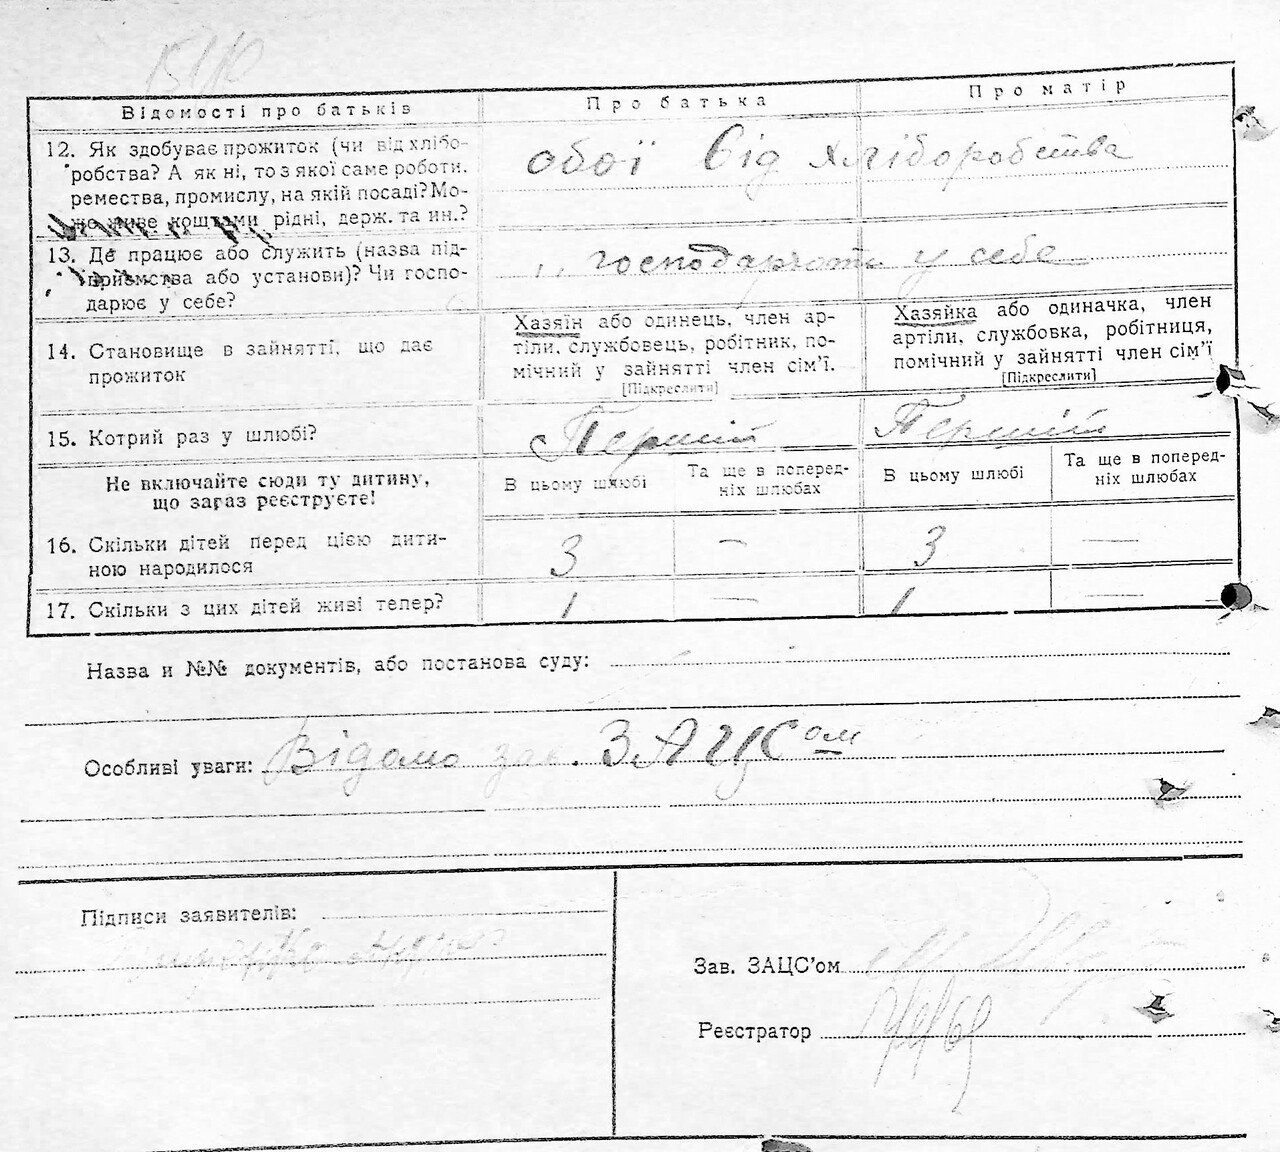 Відомості про батьків
Про батька
Про матір
12. Як здобуває прожиток (чи від хлібо-
робства? А як ні, то з якої саме роботи.
ремества, промислу, на якій посаді? Мо-
же живе коштами рідні, держ. та ин.?
обої від хліборобства
13. Де працює або служить (назва під-
приємства або установи)? Чи госпо-
дарює у себе?
,, господарюють у себе
14. Становище в зайнятті, що дає
прожиток
Хазяїн або одинець, член ар-
тіли, службовець, робітник, по-
мічний у зайнятті член сім'ї.
[Підкреслити]
Хазяйка або одиначка, член
артіли, службовка, робітниця,
помічний у зайнятті член сім'ї
[Підкреслити]
15. Котрий раз у шлюбі?
Перший
Перший
Не включайте сюди ту дитину,
що зараз реєструєте!
В цьому шлюбі
Та ще в поперед-
ніх шлюбах
В цьому шлюбі
Та ще в поперед-
ніх шлюбах
16. Скільки дітей перед цією дити-
ною народилося
3 — 3 —
17. Скільки з цих дітей живі тепер?
1 — 1 —
Назва и №№ документів, або постанова суду:
Особливі уваги: Відомо зав. ЗАЦСом
Підписи заявителів:
Зав. ЗАЦС'ом
Реєстратор